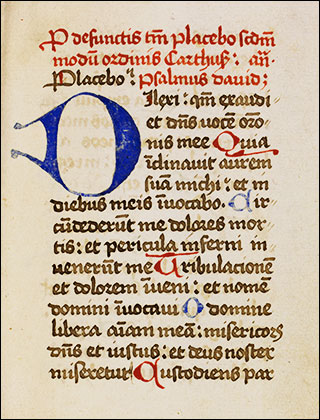 P defunctis tm̄ placebo scdm̄
modū ordinis Carthus: añ.
Placebo. Psalmus dauid;
Dilexi: qm̄ exaudi
et dn̄s vocē oro
nis mee Quia
īclinauit aurem
suā michi: et in
diebus meis īuocabo. Cir
cūdederūt me dolores mor
tis: et pericula inferni in
venerūt me Tribulacionē
et dolorem īueni: et nomē
domini īuocaui O domine
libera aīam meā: misericors
dn̄s et iustus: et deus noster
miseretur Custodiens par